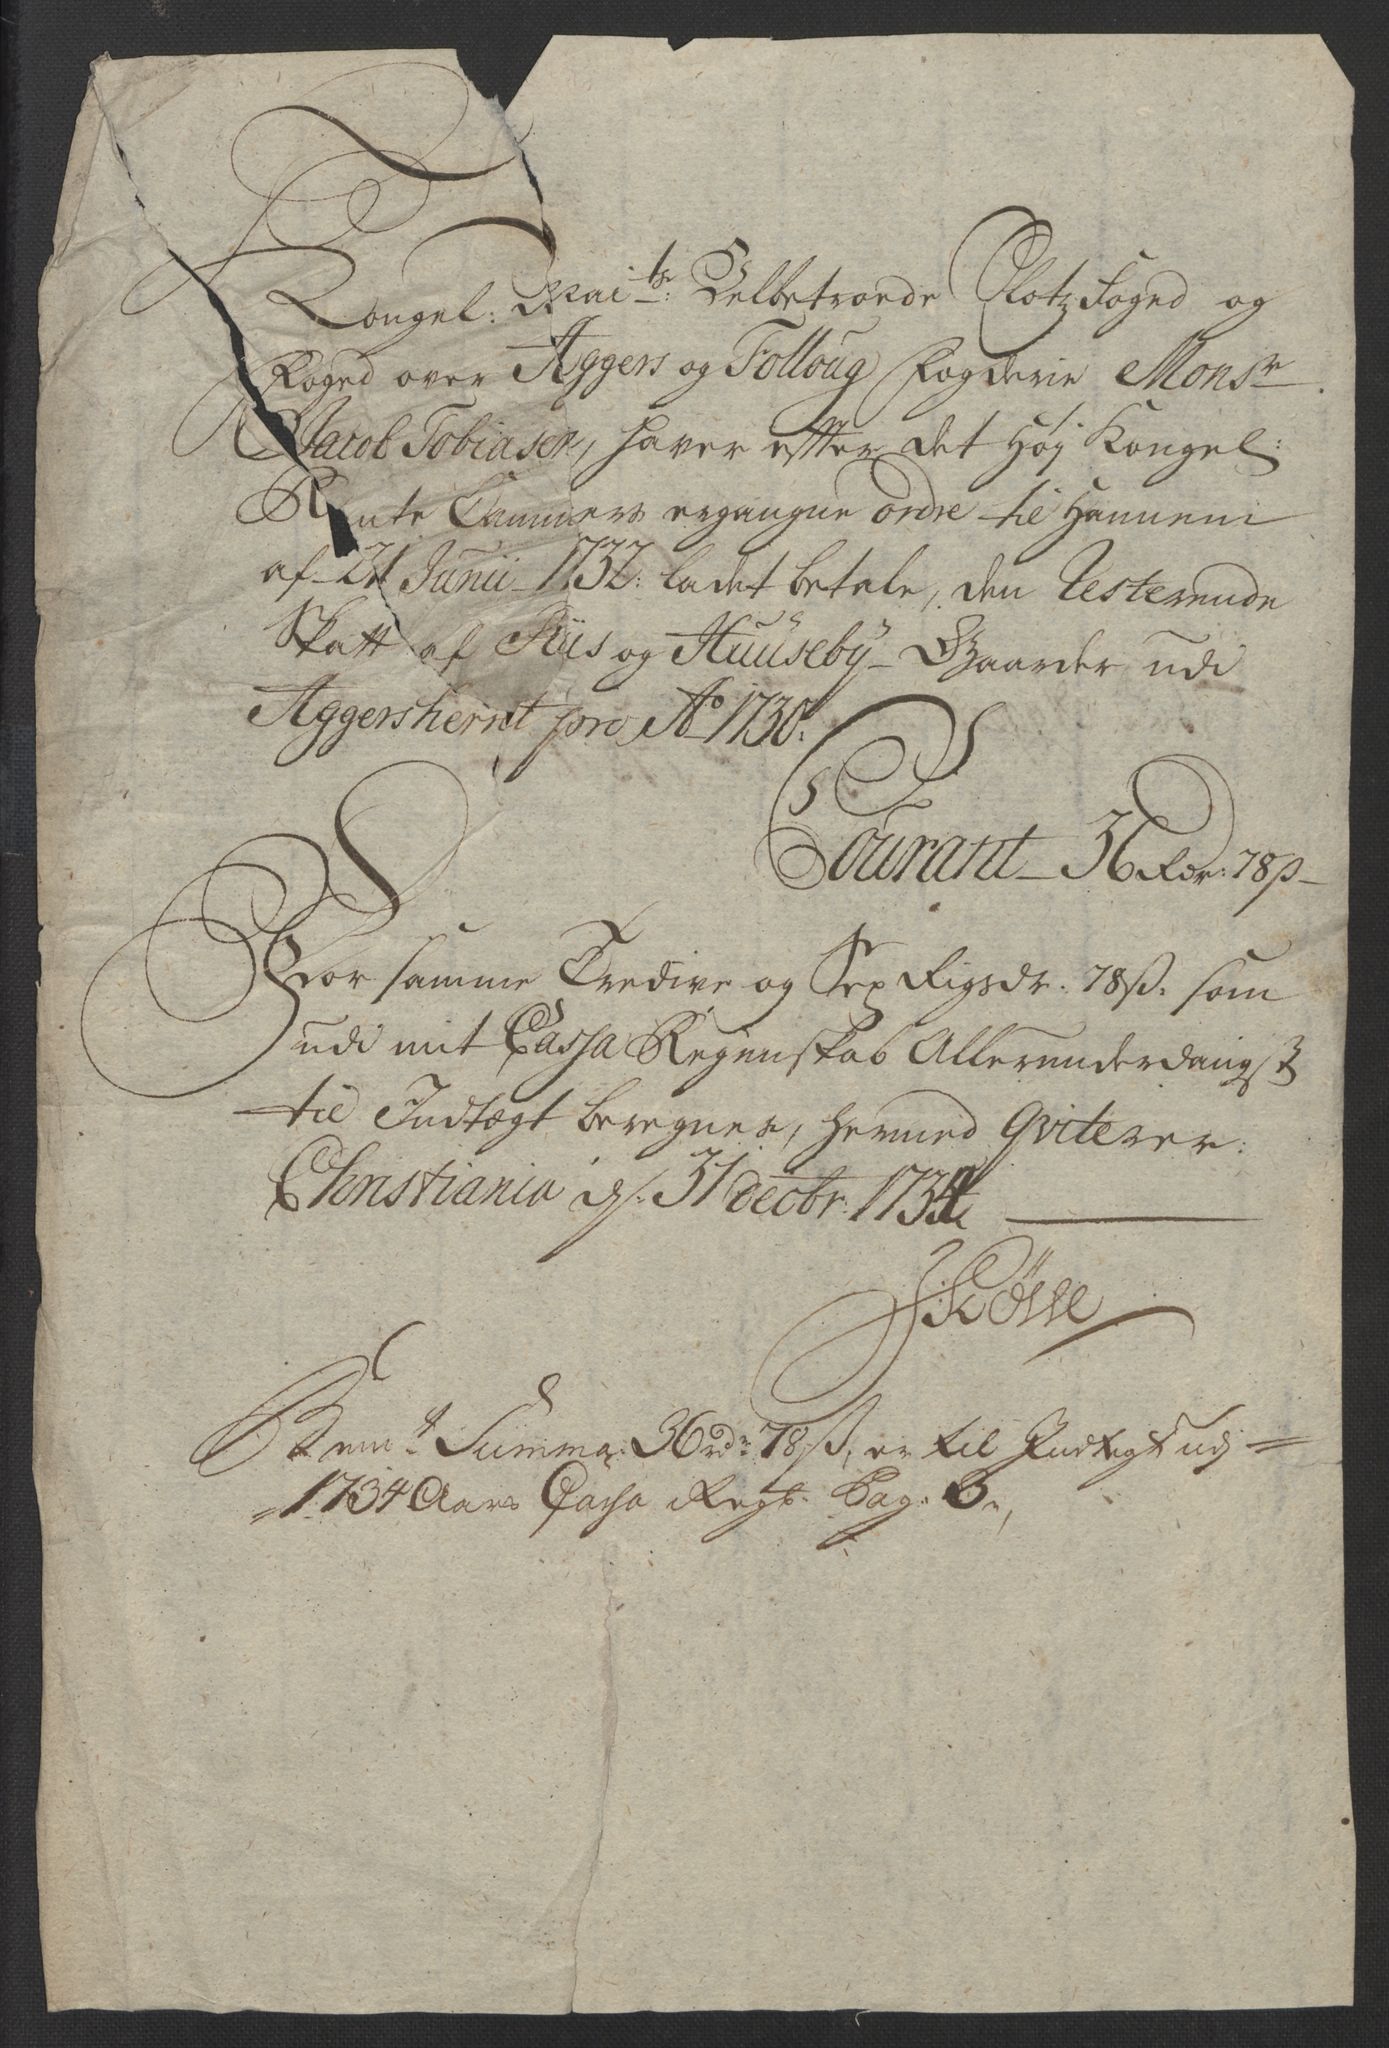 Kongel: Mai:ts Velbetroede Slotz Foged og
Foged over Aggers og Folloug Fogderie Monsr
Jacob Tobiasen, haver efter det Høj Kongel:
Rente Cammers ergangne ordre til Hannem
af 21 Junii 1732: ladet betale, den Resterende
Skatt af Riis og Huuseby Gaarder udi
Aggersherret pro Ao 1730.
Courant 36 Rdr: 78 ß
For samme Tredive og Sex Rigsdr. 78 ß. som
udi mit Cassa Regenskab Allerunderdanigst
til Indtægt beregnes, hermed Qviterer.
Christiania d. 31 Decbr: 1734
Bemt Summa 36 rdr 78 ß, er til Indtegt udj
1734 Aars Cassa Regsk. Pag: 3